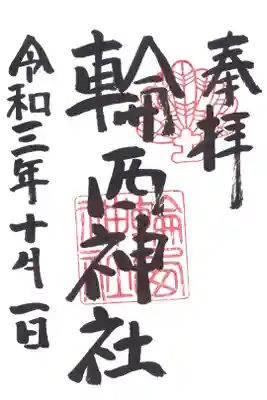 奉拝
輪西神社
令和三年十月一日
輪西神社